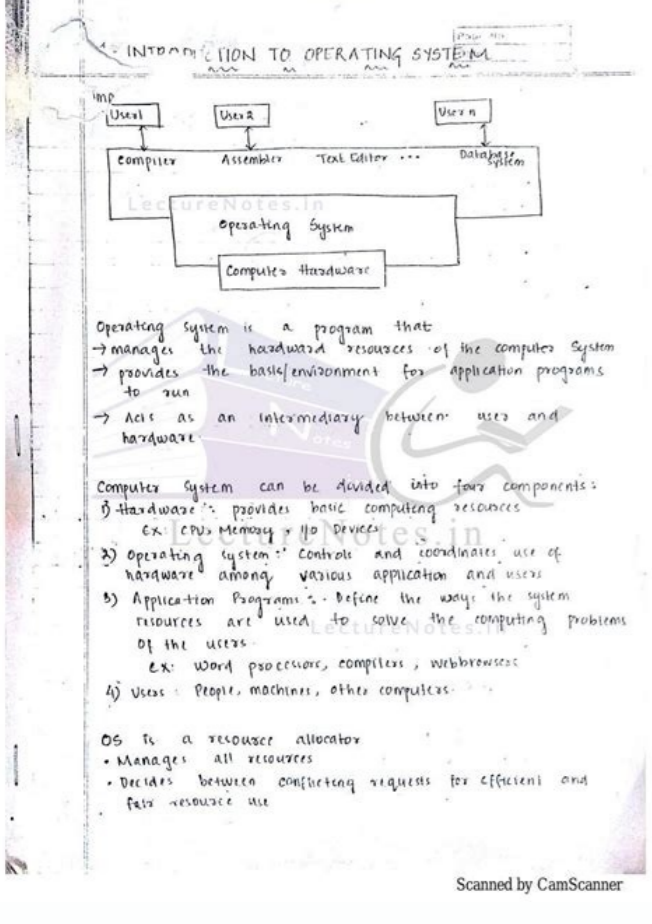 Page No.
1. INTRODUCTION TO OPERATING SYSTEM
imp
User1 User2 User n
Compiler Assembler Text Editor ... Database System
LectureNotes.in
Operating System
Computer Hardware
Operating System is a program that
→ manages the hardware resources of the computer System
→ provides the basis/environment for application programs
to run
→ Acts as an intermediary between user and
hardware.
Computer System can be divided into four components:
1) Hardware: provides basic computing resources
Ex: CPU, Memory, I/O Devices
LectureNotes.in
2) Operating System: Controls and coordinates use of
hardware among various application and users
3) Application Programs: Define the ways the system
resources are used to solve the computing problems
LectureNotes.in
of the users.
ex: word processors, compilers, webbrowsers
4) Users: People, machines, other computers.
OS is a resource allocator
• Manages all resources
• Decides between conflicting requests for efficient and
fair resource use
Scanned by CamScanner